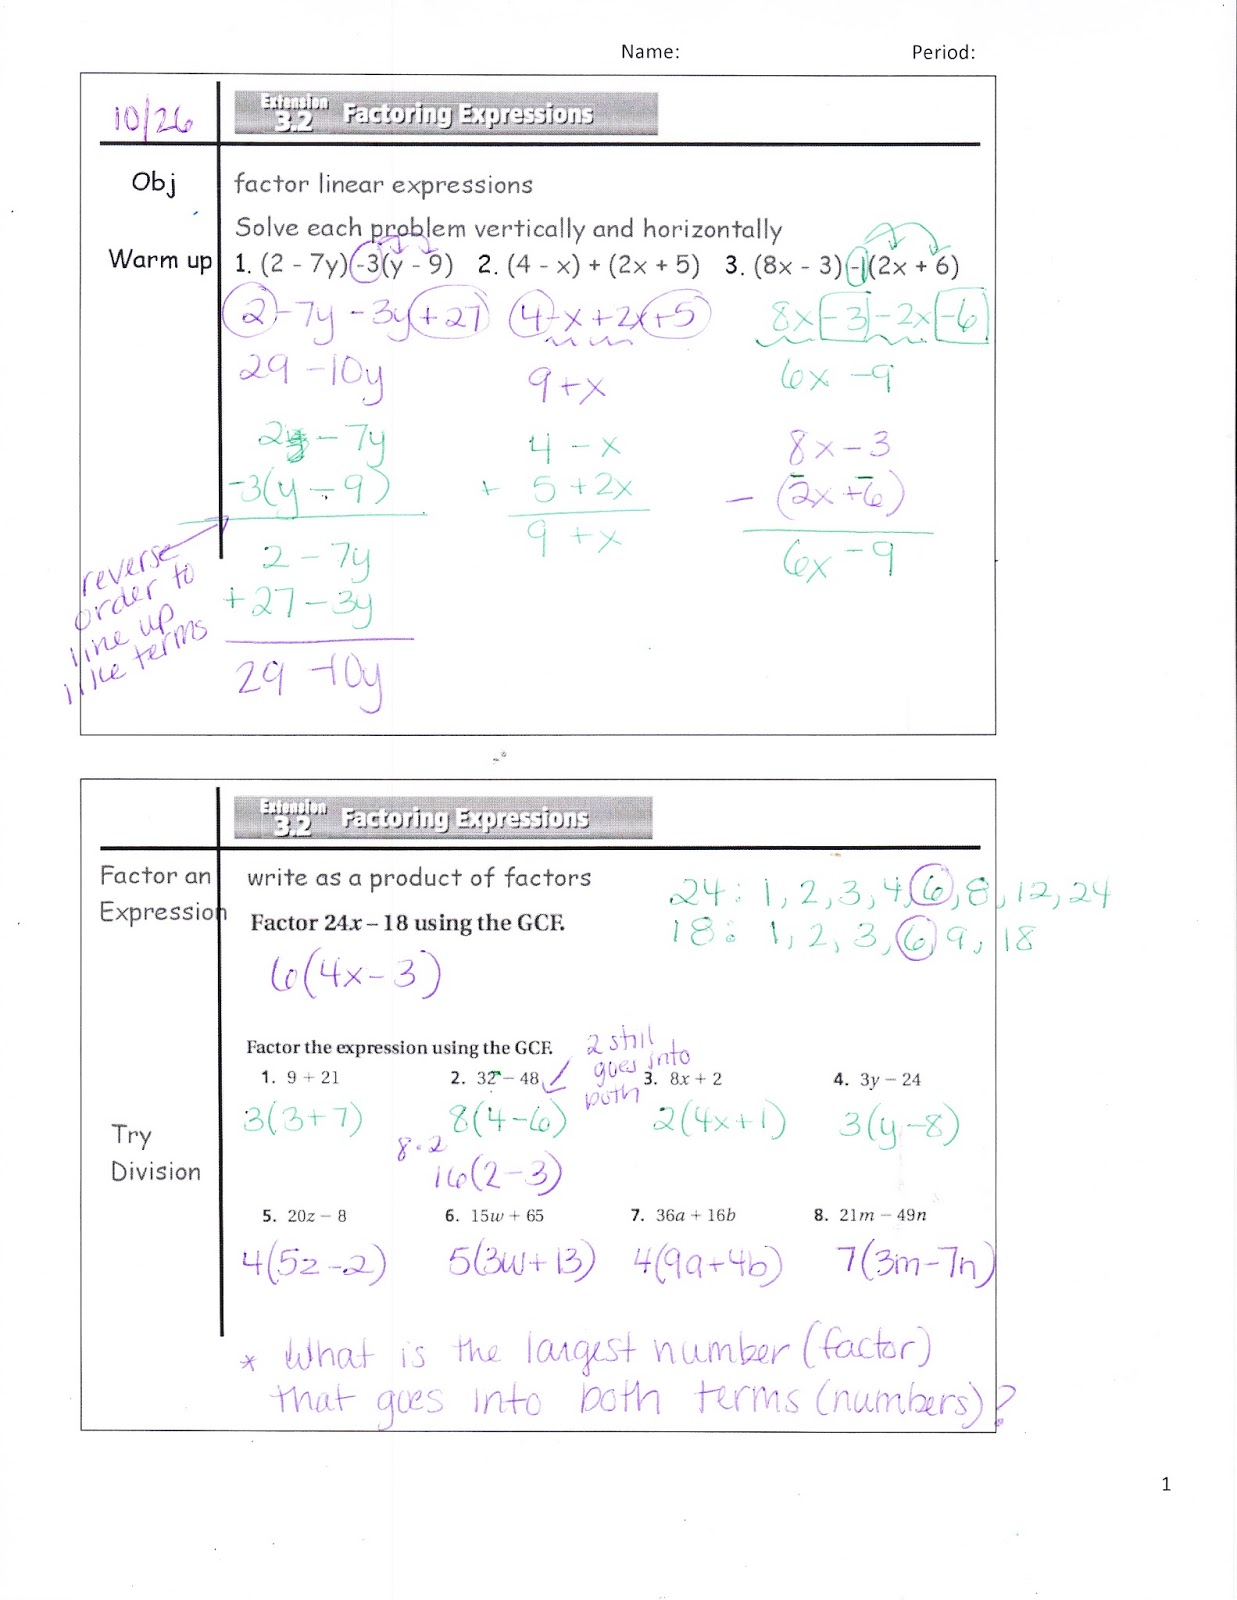 Name: Period:
10/26 Extension 3.2 Factoring Expressions
Obj factor linear expressions
Solve each problem vertically and horizontally
Warm up 1. (2 - 7y) -3(y - 9) 2. (4 - x) + (2x + 5) 3. (8x - 3) -1(2x + 6)
2 - 7y - 3y + 27 4 - x + 2x + 5 8x - 3 - 2x - 6
29 - 10y 9 + x 6x - 9
2 - 7y 4 - x 8x - 3
-3(y - 9) + 5 + 2x - (2x + 6)
9 + x 6x - 9
reverse order to line up like terms
2 - 7y
+ 27 - 3y
29 - 10y
Extension 3.2 Factoring Expressions
Factor an Expression write as a product of factors
24: 1, 2, 3, 4, 6, 8, 12, 24
Factor 24x – 18 using the GCF.
18: 1, 2, 3, 6, 9, 18
6(4x - 3)
Factor the expression using the GCF.
2 still goes into both
1. 9 + 21 2. 32 – 48 3. 8x + 2 4. 3y – 24
3(3+7) 8(4-6) 2(4x+1) 3(y-8)
Try Division
8·2
16(2-3)
5. 20z – 8 6. 15w + 65 7. 36a + 16b 8. 21m – 49n
4(5z-2) 5(3w+13) 4(9a+4b) 7(3m-7n)
* What is the largest number (factor)
that goes into both terms (numbers)?
1